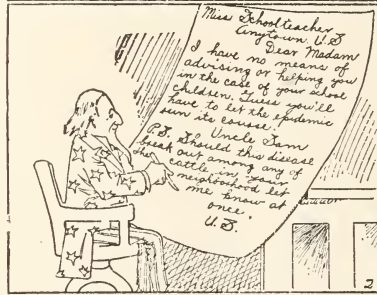 Miss Schoolteacher
Anytown, U.S.
Dear Madam
I have no means of
advising or helping you
in the case of your school
children. Guess you'll
have to let the epidemic
run its course.
Uncle Sam
P.S. Should this disease
break out among any of
the cattle in your
neighborhood let
me know at
once.
U.S.
2